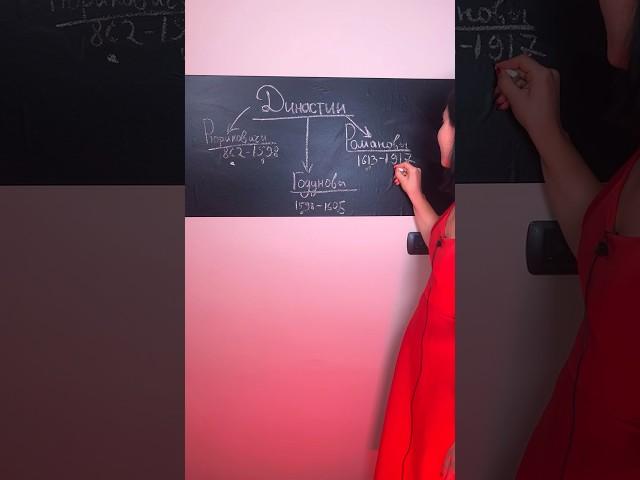 Династии
Рюриковичи
862-1598
Романовы
1613-1917
Годуновы
1598-1605